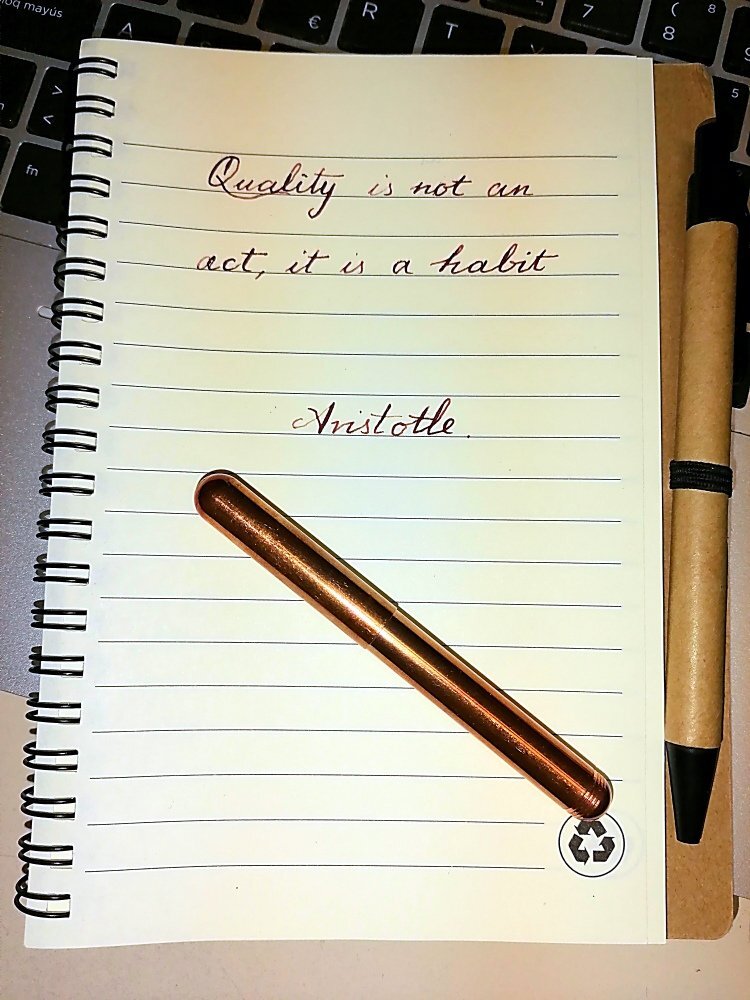 loq mayús
A
€
R
T
7
(
8
8
5
>
<
fn
Quality is not an
act, it is a habit
Aristotle.